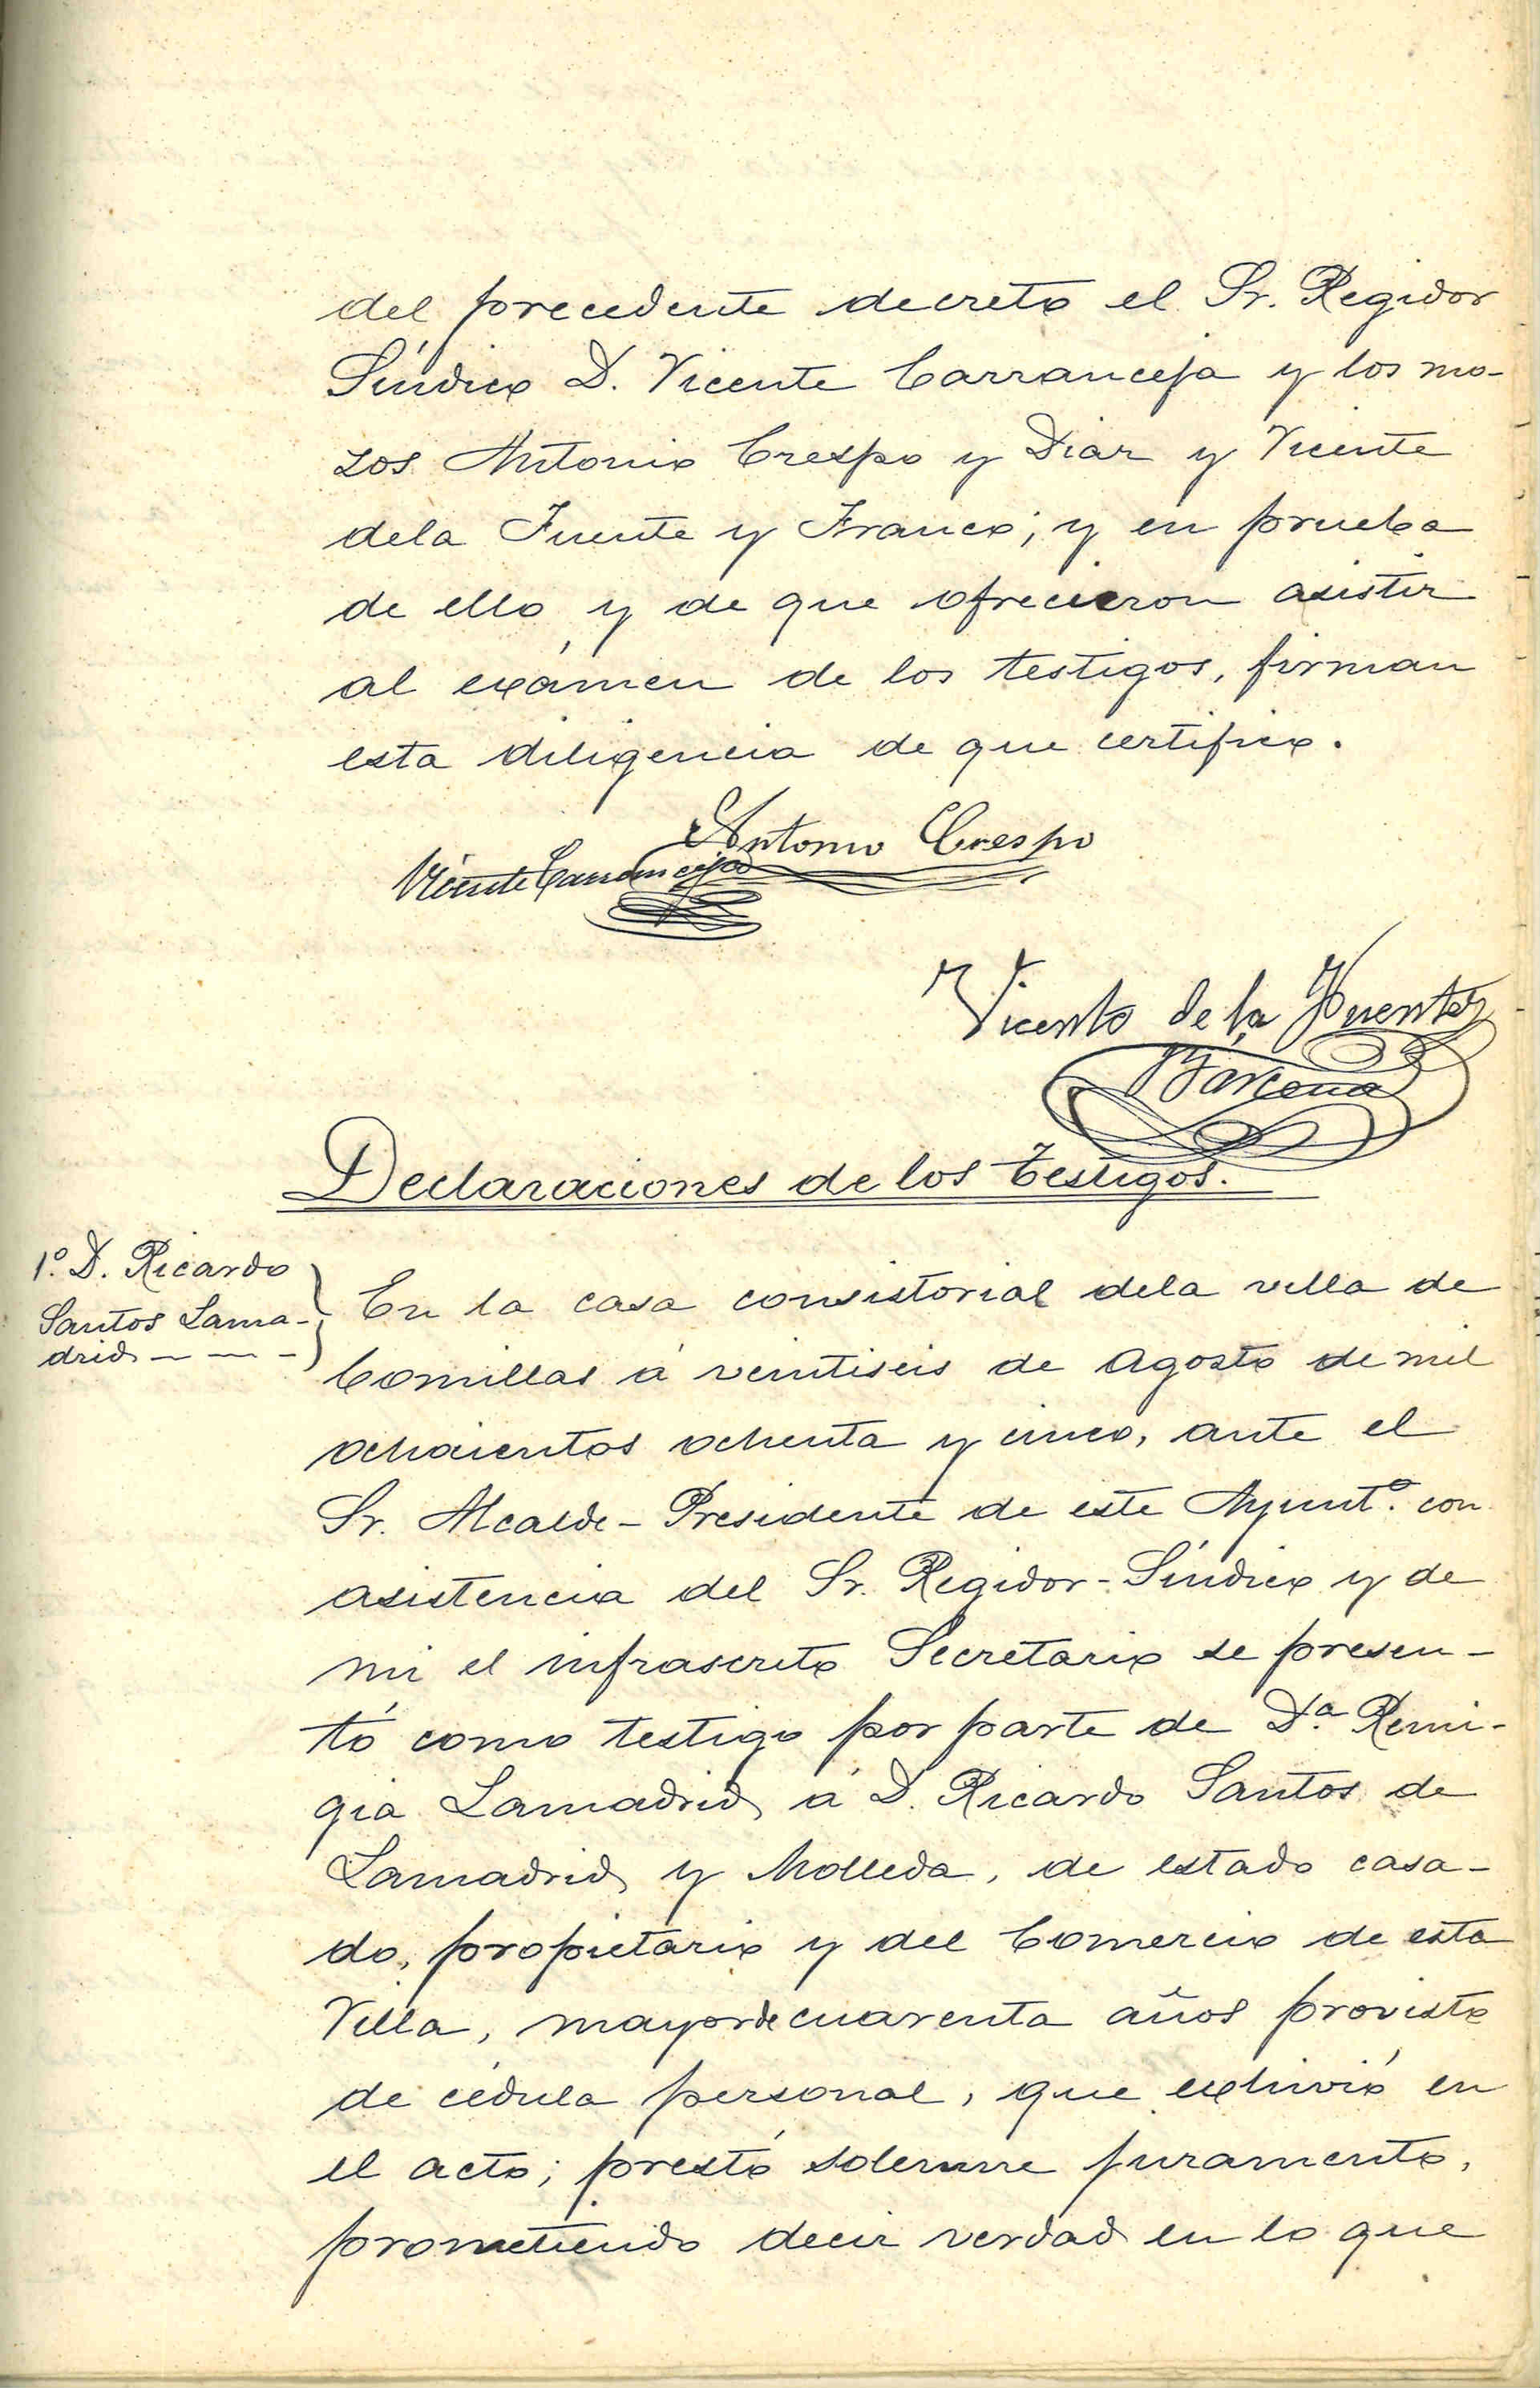 del precedente decreto el Sr. Regidor
Síndico D. Vicente Carranceja y los mo-
zos Antonio Crespo y Diaz y Vicente
dela Fuente y Franco; y en prueba
de ello y de que ofrecieron asistir
al exámen de los testigos, firman
esta diligencia de que certifico.
Antonio Crespo
Vicente Carranceja
Vicente de la Fuente
Bárcena
Declaraciones de los testigos.
1.º D. Ricardo
Santos Lama-
drid
En la casa consistorial dela villa de
Comillas á veintiseis de Agosto de mil
ochocientos ochenta y cinco, ante el
Sr. Alcalde-Presidente de este Ayunt.º con
asistencia del Sr. Regidor-Síndico y de
mi el infrascrito Secretario se presen-
tó como testigo por parte de D.ª Remi-
gia Lamadrid á D. Ricardo Santos de
Lamadrid y Molleda, de estado casa-
do, propietario y del Comercio de esta
Villa, mayor de cuarenta años provisto
de cédula personal, que exhivió en
el acto; prestó solemne juramento,
prometiendo decir verdad en lo que